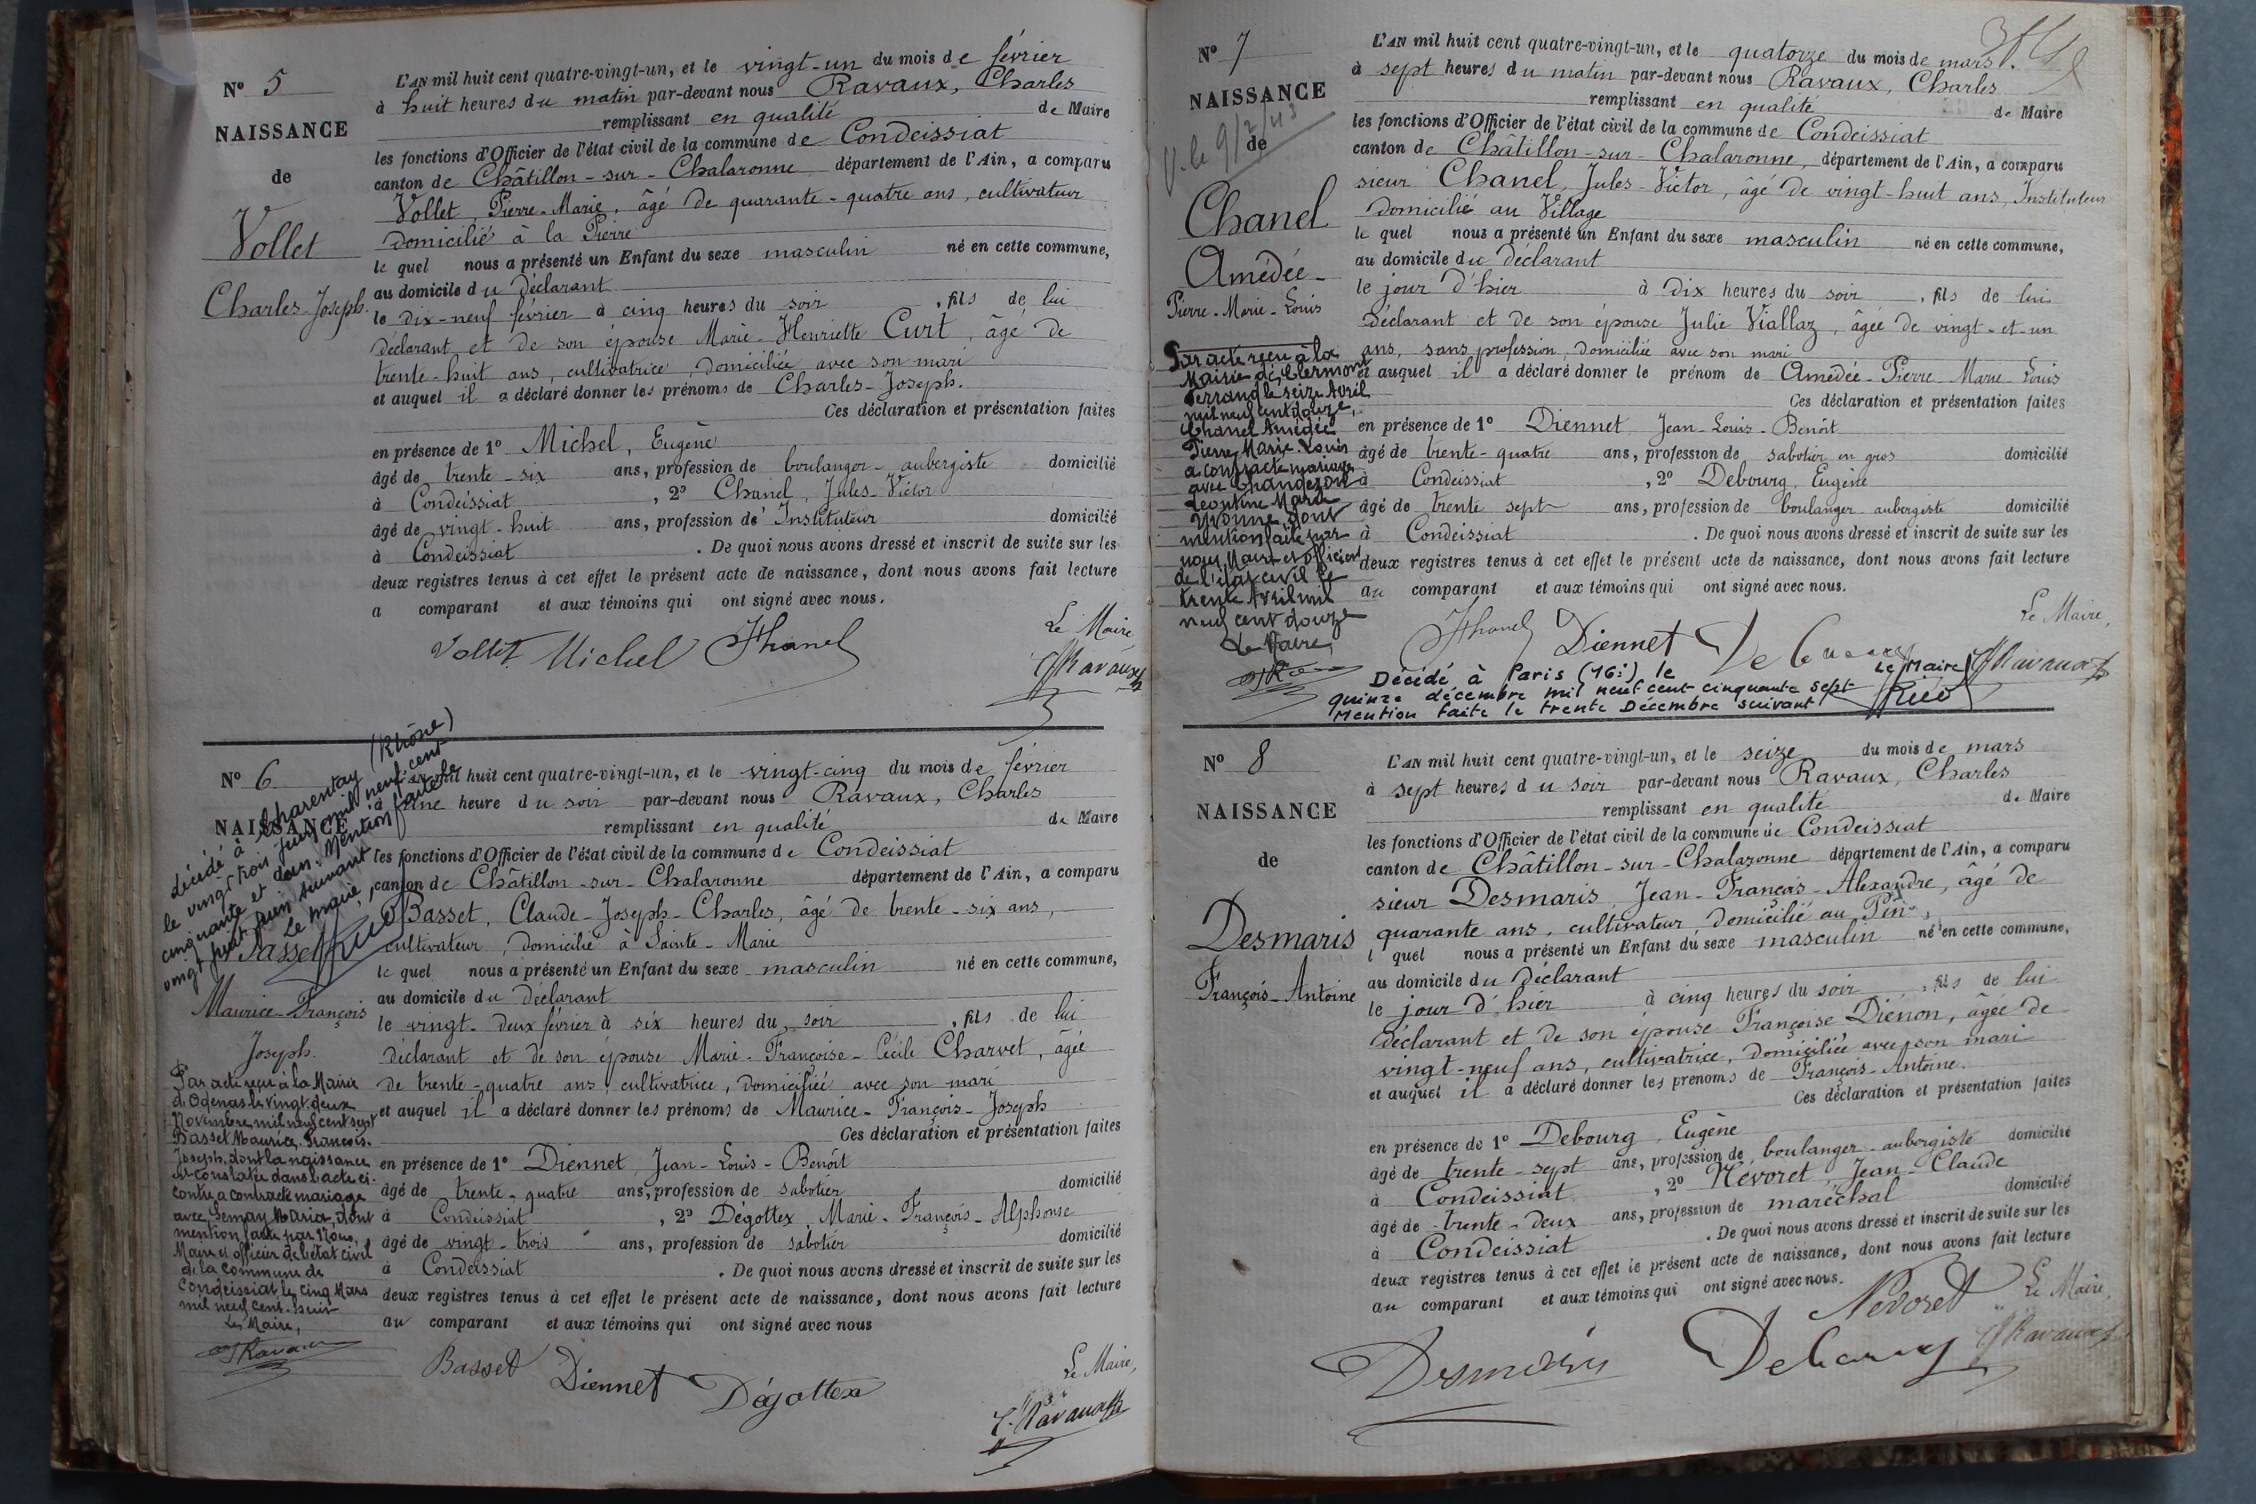 N° 5
NAISSANCE
de
Vollet
Charles-Joseph.
L'AN mil huit cent quatre-vingt-un, et le vingt-un du mois de février
à huit heures du matin par-devant nous Ravaux, Charles
remplissant en qualité de Maire
les fonctions d'Officier de l'état civil de la commune de Condeissiat
canton de Châtillon-sur-Chalaronne département de l'Ain, a comparu
Vollet, Pierre-Marie, âgé de quarante-quatre ans, cultivateur
domicilié à la Pierre
le quel nous a présenté un Enfant du sexe masculin né en cette commune,
au domicile du déclarant
le dix-neuf février à cinq heures du soir, fils de lui
déclarant et de son épouse Marie-Henriette Curt, âgé de
trente-huit ans, cultivatrice, domiciliée avec son mari
et auquel il a déclaré donner les prénoms de Charles-Joseph.
Ces déclaration et présentation faites
en présence de 1° Michel, Eugène
âgé de trente-six ans, profession de boulanger-aubergiste domicilié
à Condeissiat, 2° Chanel, Jules-Victor
âgé de vingt-huit ans, profession d'Instituteur domicilié
à Condeissiat. De quoi nous avons dressé et inscrit de suite sur les
deux registres tenus à cet effet le présent acte de naissance, dont nous avons fait lecture
a comparant et aux témoins qui ont signé avec nous.
Le Maire
Vollet Michel JChanel
CRavaux
N° 6
NAISSANCE
décédé à Charentay (Rhône)
le vingt trois juin mil neuf cent
cinquante et deux. Mention faite le
vingt huit juin suivant
Le Maire,
Basset
Maurice-François
Joseph.
Par acte reçu à la Mairie
d'Odenas le vingt deux
Novembre mil neuf cent sept
Basset Maurice François.
Joseph, dont la naissance
est constatée dans l'acte ci-
contre a contracté mariage
avec Semay Maria, dont
mention faite par Nous,
Maire et officier de l'état civil
de la commune de
Condeissiat le cinq Mars
mil neuf cent-huit
Le Maire,
Ravaux
L'AN mil huit cent quatre-vingt-un, et le vingt-cinq du mois de février
à une heure du soir par-devant nous Ravaux, Charles
remplissant en qualité de Maire
les fonctions d'Officier de l'état civil de la commune de Condeissiat
canton de Châtillon-sur-Chalaronne département de l'Ain, a comparu
Basset, Claude-Joseph-Charles, âgé de trente-six ans,
cultivateur, domicilié à Sainte-Marie
le quel nous a présenté un Enfant du sexe masculin né en cette commune,
au domicile du déclarant
le vingt-deux février à six heures du soir, fils de lui
déclarant et de son épouse Marie-Françoise-Cécile Charvet, âgée
de trente-quatre ans, cultivatrice, domiciliée avec son mari
et auquel il a déclaré donner les prénoms de Maurice-François-Joseph
Ces déclaration et présentation faites
en présence de 1° Diennet, Jean-Louis-Benoît
âgé de trente-quatre ans, profession de sabotier domicilié
à Condeissiat, 2° Dégottex, Marie-François-Alphonse
âgé de vingt-trois ans, profession de sabotier domicilié
à Condeissiat. De quoi nous avons dressé et inscrit de suite sur les
deux registres tenus à cet effet le présent acte de naissance, dont nous avons fait lecture
au comparant et aux témoins qui ont signé avec nous
Le Maire,
Basset Diennet Dégottex
C. Ravaux
N° 7
NAISSANCE
V. le 9/2/43
de
Chanel
Amédée-
Pierre-Marie-Louis
Par acte reçu à la
Mairie de Clermont
Ferrand le seize Avril
mil neuf cent douze,
Chanel Amédée
Pierre, Marie-Louis
a contracté mariage
avec Changezon
Léontine Maria
Yvonne, dont
mention faite par
nous, Maire et officier
de l'état civil le
trente Avril mil
neuf cent douze
Le Maire,
L'AN mil huit cent quatre-vingt-un, et le quatorze du mois de mars.
à sept heures du matin par-devant nous Ravaux, Charles
remplissant en qualité de Maire
les fonctions d'Officier de l'état civil de la commune de Condeissiat
canton de Châtillon-sur-Chalaronne, département de l'Ain, a comparu
sieur Chanel, Jules-Victor, âgé de vingt-huit ans, Instituteur
domicilié au Village
le quel nous a présenté un Enfant du sexe masculin né en cette commune,
au domicile du déclarant
le jour d'hier à dix heures du soir, fils de lui
déclarant et de son épouse Julie Viallaz, âgée de vingt-et-un
ans, sans profession, domiciliée avec son mari
et auquel il a déclaré donner le prénom de Amédée-Pierre-Marie-Louis
Ces déclaration et présentation faites
en présence de 1° Diennet Jean-Louis-Benoît
âgé de trente-quatre ans, profession de sabotier en gros domicilié
à Condeissiat, 2° Debourg, Eugène
âgé de trente sept ans, profession de boulanger aubergiste domicilié
à Condeissiat. De quoi nous avons dressé et inscrit de suite sur les
deux registres tenus à cet effet le présent acte de naissance, dont nous avons fait lecture
au comparant et aux témoins qui ont signé avec nous.
Le Maire,
JChanel Diennet Debourg CRavaux
Décédé à Paris (16e) le
quinze décembre mil neuf cent cinquante sept
Mention faite le trente Décembre suivant
Le Maire
N° 8
NAISSANCE
de
Desmaris
François-Antoine
L'AN mil huit cent quatre-vingt-un, et le seize du mois de mars
à sept heures du soir par-devant nous Ravaux, Charles
remplissant en qualité de Maire
les fonctions d'Officier de l'état civil de la commune de Condeissiat
canton de Châtillon-sur-Chalaronne département de l'Ain, a comparu
sieur Desmaris, Jean-François-Alexandre, âgé de
quarante ans, cultivateur, domicilié au Pin,
l quel nous a présenté un Enfant du sexe masculin né en cette commune,
au domicile du déclarant
le jour d'hier à cinq heures du soir, fils de lui
déclarant et de son épouse Françoise Diénon, âgée de
vingt-neuf ans, cultivatrice, domiciliée avec son mari
et auquel il a déclaré donner les prénoms de François-Antoine.
Ces déclaration et présentation faites
en présence de 1° Debourg, Eugène
âgé de trente-sept ans, profession de boulanger-aubergiste domicilié
à Condeissiat, 2° Névoret, Jean-Claude
âgé de trente-deux ans, profession de maréchal domicilié
à Condeissiat. De quoi nous avons dressé et inscrit de suite sur les
deux registres tenus à cet effet le présent acte de naissance, dont nous avons fait lecture
au comparant et aux témoins qui ont signé avec nous.
Le Maire,
Névoret
Desmaris Debourg CRavaux